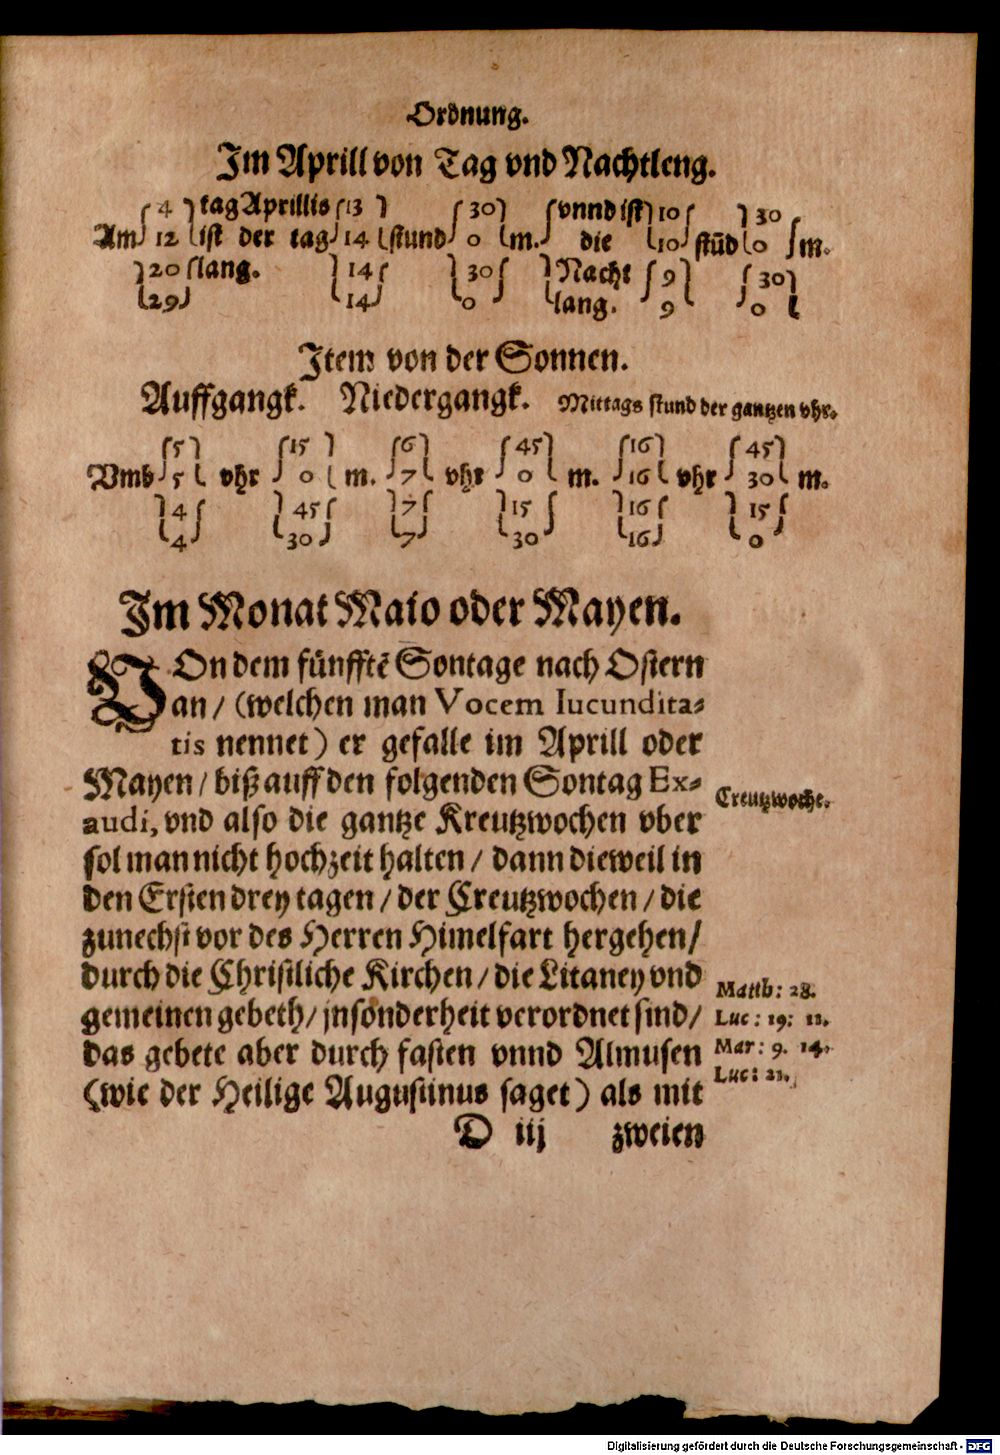 Ordnung.
Im Aprill von Tag vnd Nachtleng.
4 tag Aprillis 13 30 vnnd ist 10 30
Am 12 ist der tag 14 stund 0 m. die 10 stūd 0 m.
20 lang. 14 30 Nacht 9 30
29 14 0 lang. 9 0
Item von der Sonnen.
Auffgangk. Niedergangk. Mittags stund der gantzen vhr.
5 15 6 45 16 45
Vmb 5 vhr 0 m. 7 vhr 0 m. 16 vhr 30 m.
4 45 7 15 16 15
4 30 7 30 16 0
Im Monat Maio oder Mayen.
VOn dem fünfftē Sontage nach Ostern
an / (welchen man Vocem Iucundita⸗
tis nennet) er gefalle im Aprill oder
Mayen / biß auff den folgenden Sontag Ex⸗
audi, vnd also die gantze Kreutzwochen vber
sol man nicht hochzeit halten / dann dieweil in
den Ersten drey tagen / der Creutzwochen / die
zunechst vor des Herren Himelfart hergehen /
durch die Christliche Kirchen / die Litaney vnd
gemeinen gebeth / jnsonderheit verordnet sind /
das gebete aber durch fasten vnnd Almusen
(wie der Heilige Augustinus saget) als mit
D iij zweien
Creutzwoche.
Matth: 28.
Luc: 19: 11.
Mar: 9. 14.
Luc: 21.
Digitalisierung gefördert durch die Deutsche Forschungsgemeinschaft - DFG